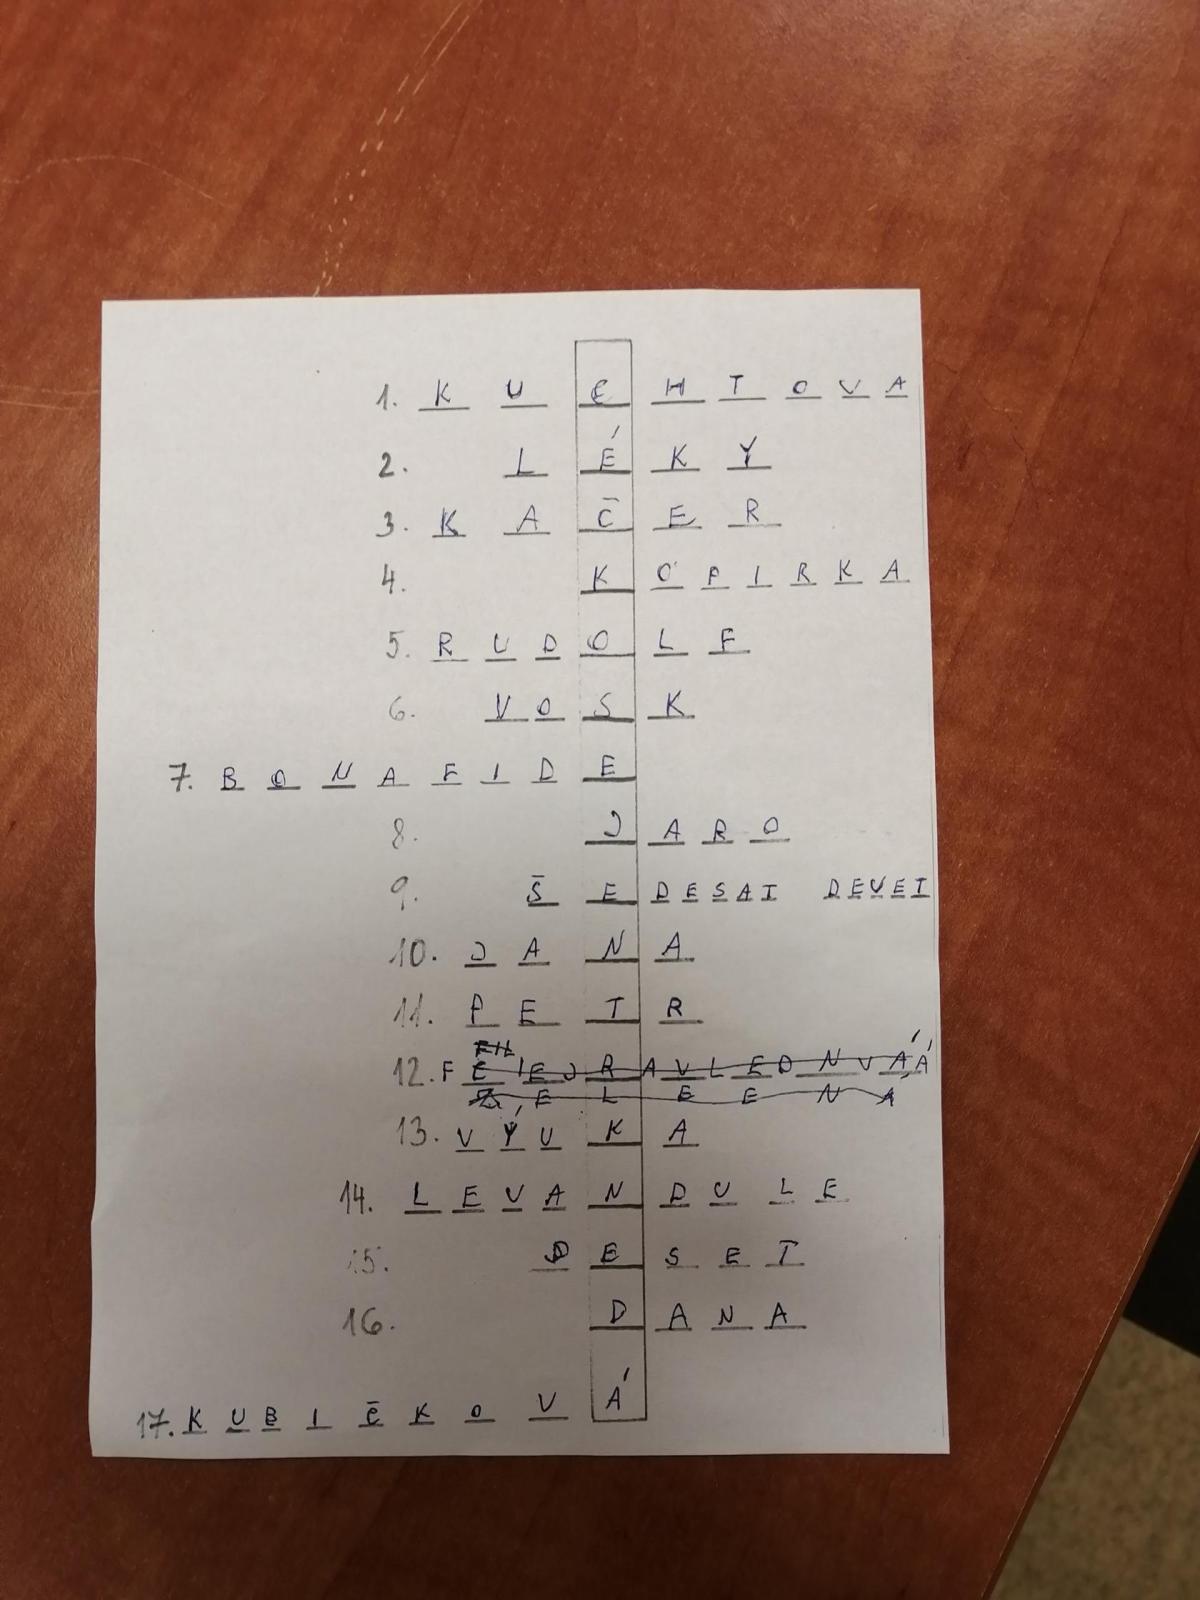 1. KUCHTOVA
2. LÉKY
3. KAČER
4. KOPIRKA
5. RUDOLF
6. VOSK
7. BONAFIDE
8. JARO
9. ŠEDESAT DEVET
10. JANA
11. PETR
12.
13. VÝUKA
14. LEVANDULE
15. DESET
16. DANA
17. KUBIČKOVÁ